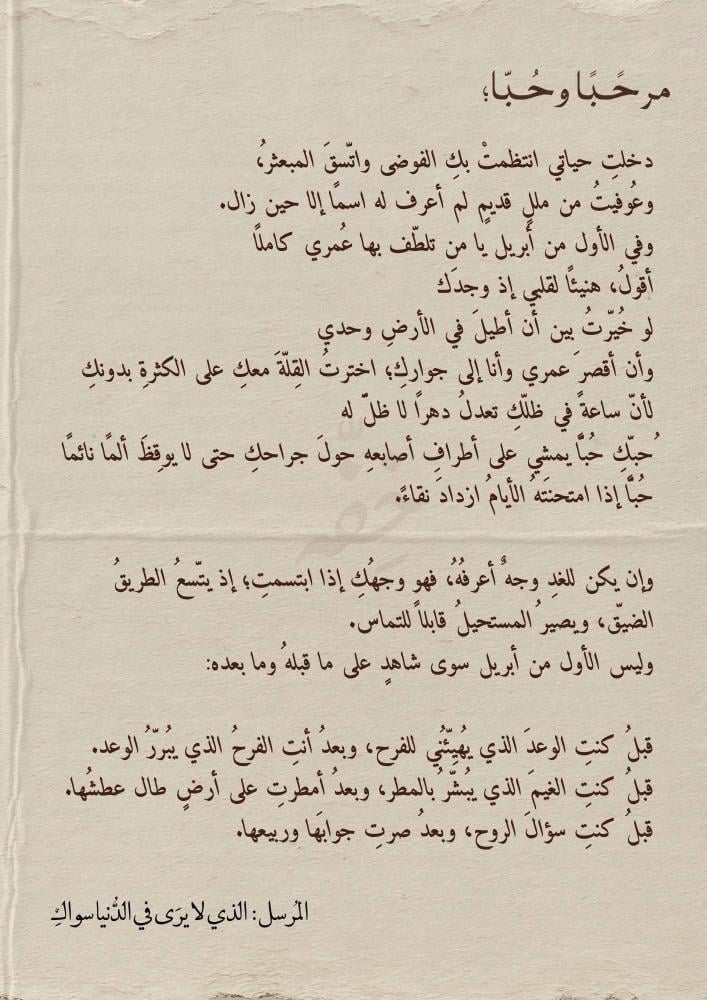 مرحًبًا وحُبّا؛
دخلتِ حياتي انتظمتْ بكِ الفوضى واتّسقَ المبعثرُ،
وعُوفيتُ من مللٍ قديمٍ لم أعرف له اسمًا إلا حين زال.
وفي الأول من أبريل يا من تلطّف بها عُمري كاملًا
أقولُ، هنيئاً لقلبي إذ وجدَك
لو خُيّرتُ بين أن أطيلَ في الأرضِ وحدي
وأن أقصرَ عمري وأنا إلى جواركِ؛ اخترتُ القِلّةَ معكِ على الكثرةِ بدونكِ
لأنّ ساعةً في ظلّكِ تعدلُ دهراً لا ظلّ له
ُحبّكِ حُباًّ يمشي على أطرافِ أصابعهِ حولَ جراحكِ حتى لا يوقِظَ ألمًا نائمًا
حُباًّ إذا امتحنَتهُ الأيامُ ازدادَ نقاءً.
وإن يكن للغدِ وجهٌ أعرفُهُ، فهو وجهُكِ إذا ابتسمتِ؛ إذ يتّسعُ الطريقُ
الضيّق، ويصيرُ المستحيلُ قابلاً للتماس.
وليس الأول من أبريل سوى شاهدٍ على ما قبلهُ وما بعده:
قبلُ كنتِ الوعدَ الذي يُهيِّئُني للفرح، وبعدُ أنتِ الفرحُ الذي يُبررُّ الوعد.
قبلُ كنتِ الغيمَ الذي يُبشّرُ بالمطر، وبعدُ أمطرتِ على أرضٍ طال عطشُها.
قبلُ كنتِ سؤالَ الروح، وبعدُ صرتِ جوابهَا وربيعها.
المُرسل: الذي لا يرَى في الدُّنيا سواكِ